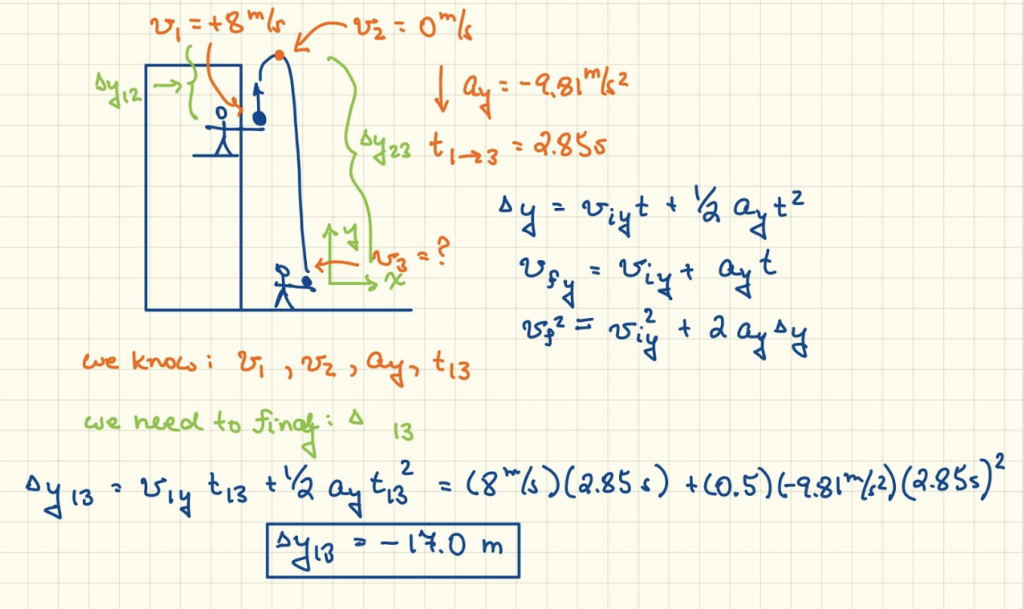 v₁ = +8 m/s
v₂ = 0 m/s
Δy₁₂
a_y = -9.81 m/s²
Δy₂₃
t₁→₃ = 2.85s
Δy = v_iy t + ½ a_y t²
y
v₃ = ?
x
v_fy = v_iy + a_y t
v_f² = v_iy² + 2 a_y Δy
we know: v₁, v₂, a_y, t₁₃
we need to find: Δ ₁₃
Δy₁₃ = v₁y t₁₃ + ½ a_y t₁₃² = (8 m/s)(2.85 s) + (0.5)(-9.81 m/s²)(2.85s)²
Δy₁₃ = -17.0 m